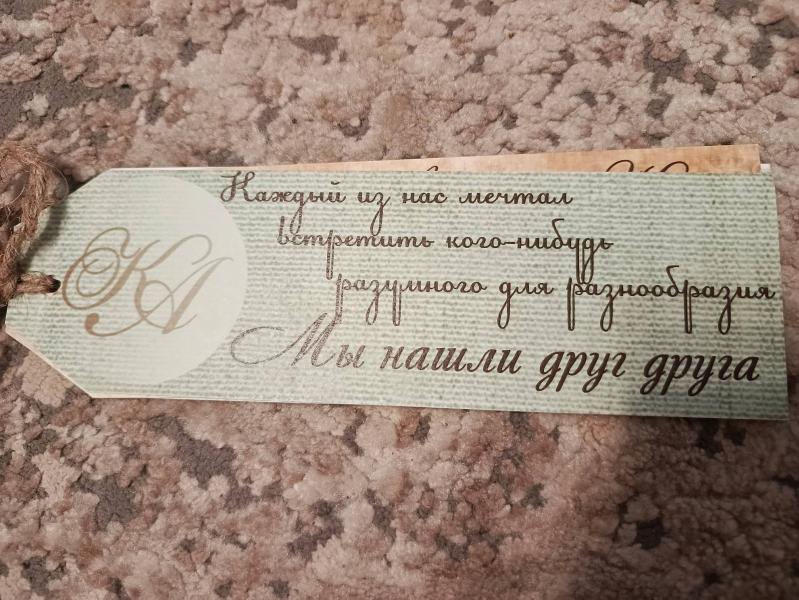 КА
Каждый из нас мечтал
встретить кого-нибудь
разумного для разнообразия
Мы нашли друг друга